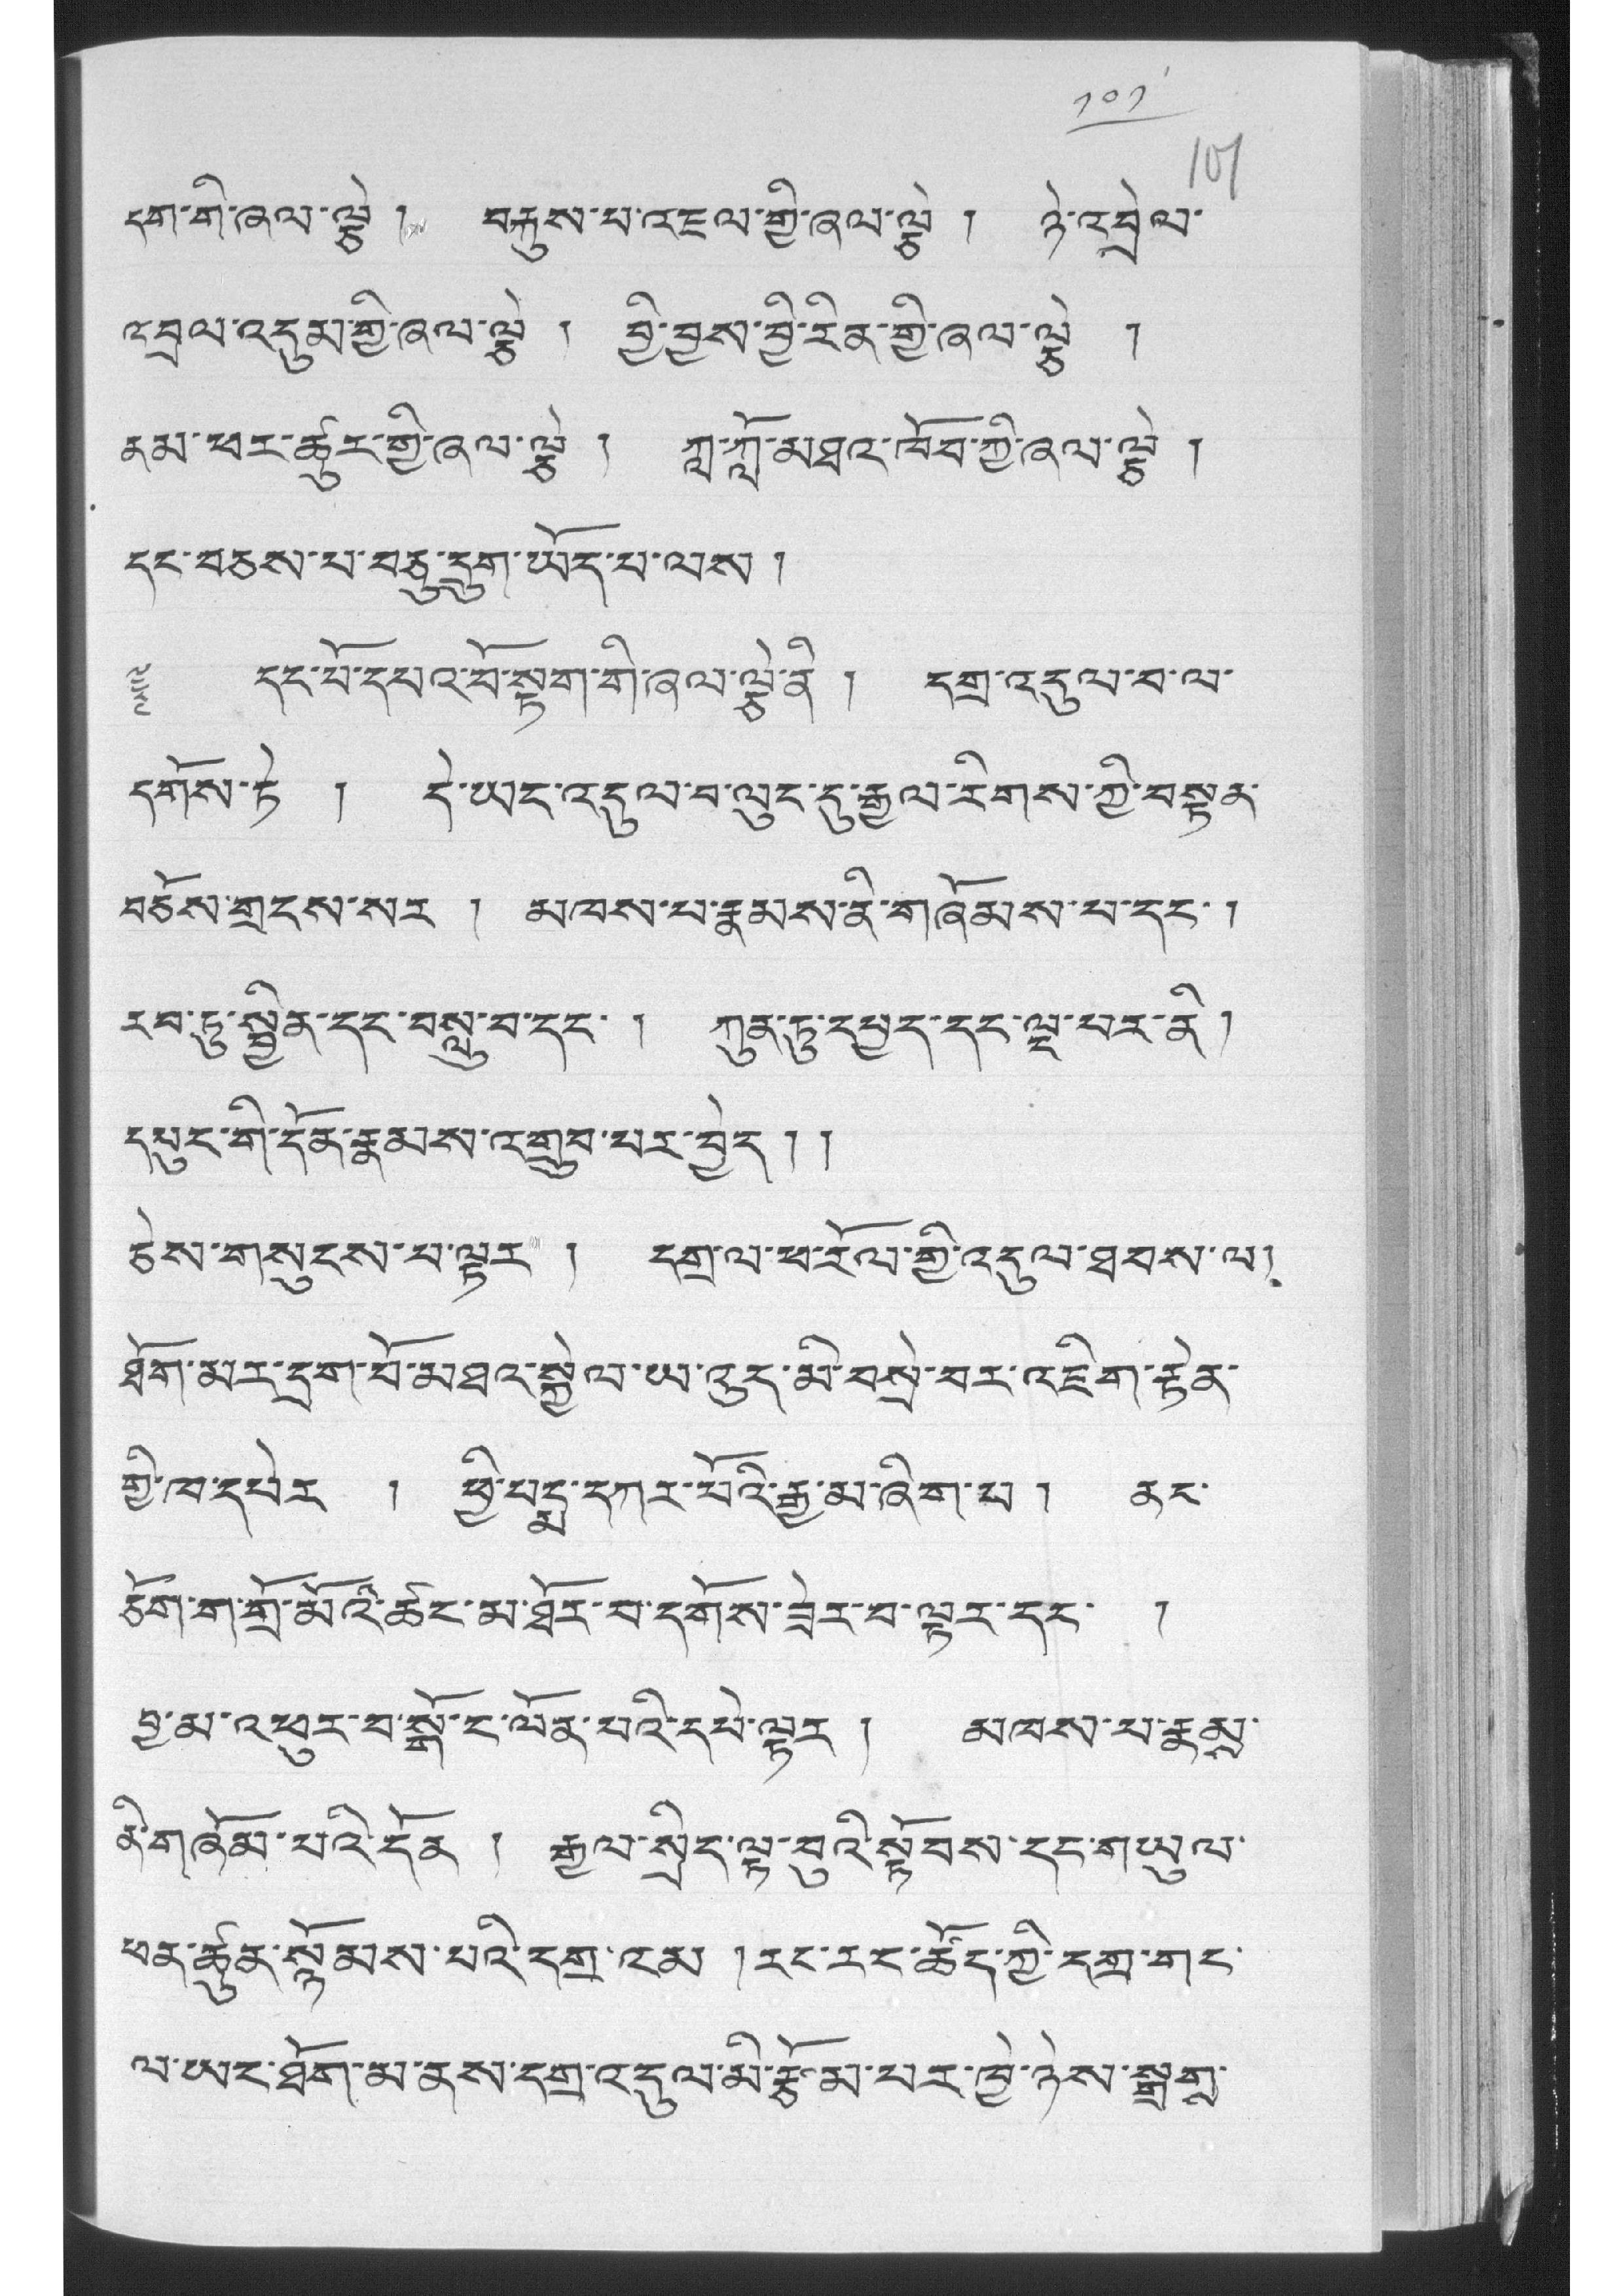 ༡༠༡
101
དག་གི་ཞལ་ལྕེ། བརྐུས་པ་འཇལ་གྱི་ཞལ་ལྕེ། ཉེ་འབྲེལ་
འབྲལ་འདུམ་གྱི་ཞལ་ལྕེ། བྱི་བྱས་བྱི་རིན་གྱི་ཞལ་ལྕེ།
ནམ་ཕར་ཚུར་གྱི་ཞལ་ལྕེ། ཀླ་ཀློ་མཐའ་ཁོབ་ཀྱི་ཞལ་ལྕེ།
དང་བཅས་པ་བཅུ་དྲུག་ཡོད་པ་ལས།
དང་པོ་དཔའ་བོ་སྟག་གི་ཞལ་ལྕེ་ནི། དགྲ་འདུལ་བ་ལ་
དགོས་ཏེ། དེ་ཡང་འདུལ་བ་ལུང་དུ་རྒྱལ་རིགས་ཀྱི་བསྟན་
བཅོས་གྲངས་སར། མཁས་པ་རྣམས་ནི་གཞོམས་པ་དང་།
རབ་ཏུ་སྦྱིན་དང་བསླུ་བ་དང་། ཀུན་ཏུ་དཔྱད་དང་ལྔ་པར་ནི།
དཔུང་གི་དོན་རྣམས་འགྲུབ་པར་བྱེད།།
ཅེས་གསུངས་པ་ལྟར། དགྲ་ལ་ཕ་རོལ་གྱི་འདུལ་ཐབས་ལ།
ཐོག་མར་དྲག་པོ་མཐའ་སྐྱེལ་ཡ་འུད་མི་བསྲེ་བར་འཇིག་རྟེན་
གྱི་ཁ་དཔེར། ཕྱི་པདྨ་དཀར་པོའི་རྒྱ་མ་ཞིག་པ། ནང་
ཅོག་ག་གྲོ་མོའི་ཚང་མ་ཐོར་བ་དགོས་ཟེར་བ་ལྟར་དང་།
བྱ་མ་འཕུར་བ་སྒོ་ང་ལོན་པའི་དཔེ་ལྟར། མཁས་པ་རྣམས
ནི་གཞོམ་པའི་དོན། རྒྱལ་སྲིད་ལྟ་བུའི་སྟོབས་དང་གཡུལ་
ཕན་ཚུན་སྙོམས་པའི་དགྲ་འམ། རང་རང་ཚོད་ཀྱི་དགྲ་གང་
ལ་ཡང་ཐོག་མ་ནས་དགྲ་འདུལ་མི་རྩོམ་པར་ཁྱེ་ཉེས་སྒྲིག